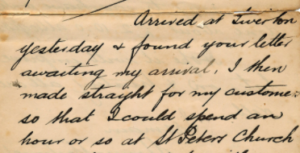 Arrived at Tiverton
yesterday & found your letter
awaiting my arrival. I then
made straight for my custome:
so that I could spend an
hour or so at St Peters Church